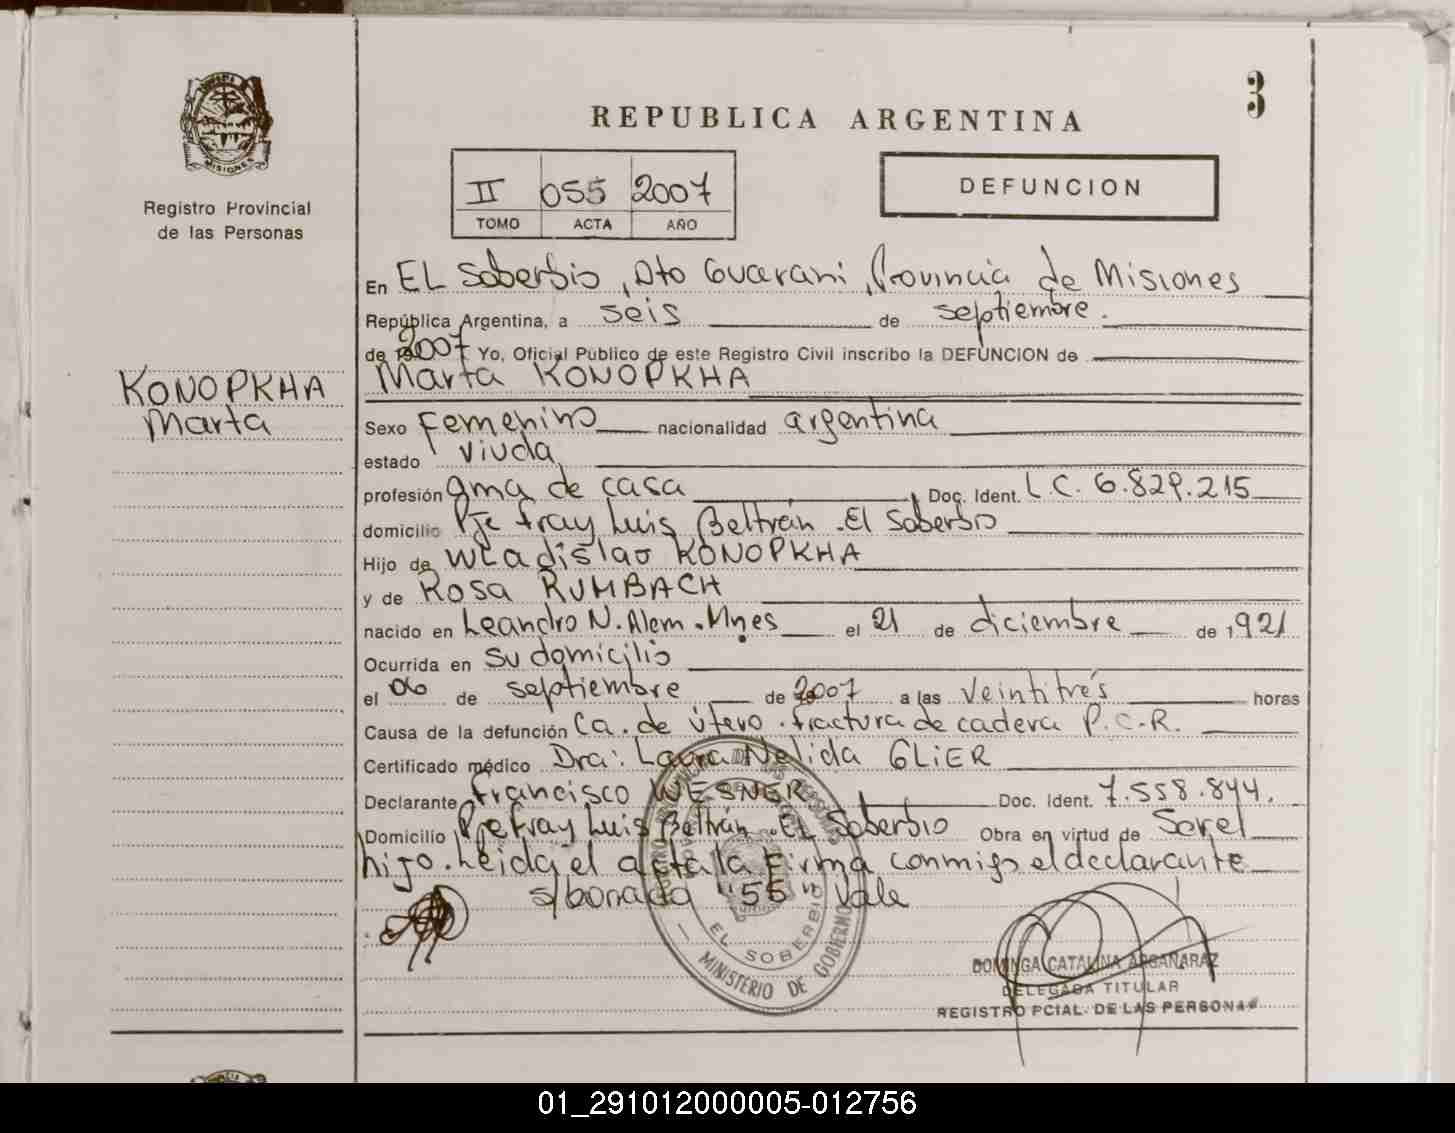 3
REPUBLICA ARGENTINA
MISIONES
Registro Provincial
de las Personas
II 055 2007
TOMO ACTA AÑO
DEFUNCION
En EL Soberbio, Dto Guarani, Provincia de Misiones
República Argentina, a seis de septiembre.
de 2007 Yo, Oficial Público de este Registro Civil inscribo la DEFUNCION de
KONOPKHA
Marta
Marta KONOPKHA
Sexo Femenino nacionalidad argentina
estado viuda
profesión ama de casa Doc. Ident. L.C. 6.829.215
domicilio Pje fray Luis Beltrán. El Soberbio
Hijo de WLadislao KONOPKHA
y de Rosa RUMBACH
nacido en Leandro N. Alem. Mnes el 21 de diciembre de 1921
Ocurrida en su domicilio
el 06 de septiembre de 2007 a las Veintitrés horas
Causa de la defunción Ca. de útero. fractura de cadera P.C.R.
Certificado médico Dra: Laura Nelida GLIER
Declarante Francisco WESNER Doc. Ident. 7.558.844.
Domicilio Pje fray Luis Beltrán. EL Soberbio Obra en virtud de Ser el
hijo. Leida el acta la Firma conmigo el declarante
s/borrado "55" Vale
EL SOBERBIO
MINISTERIO DE GOBIERNO
DOMINGA CATALINA ARGAÑARAZ
DELEGADA TITULAR
REGISTRO PCIAL. DE LAS PERSONAS
01_291012000005-012756